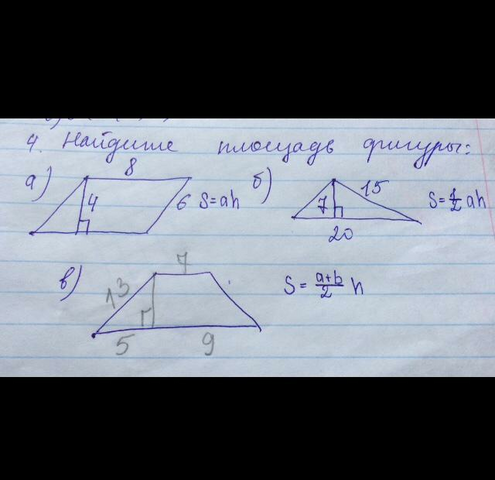 4. Найдите площадь фигуры:
а) 8 4 6 S=ah б) 7 15 20 S=½ah
в) 13 7 5 9 S=(a+b)/2 h